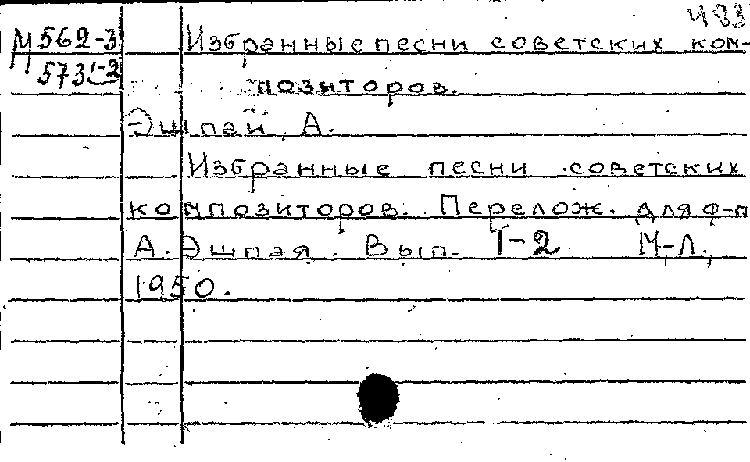 483
М 562-3 Избранные песни советских ком-
573-2 позиторов.
Эшпай, А.
Избранные песни советских
композиторов. Перелож. для ф-п
А. Эшпая. Вып. 1-2 М-Л,
1950.